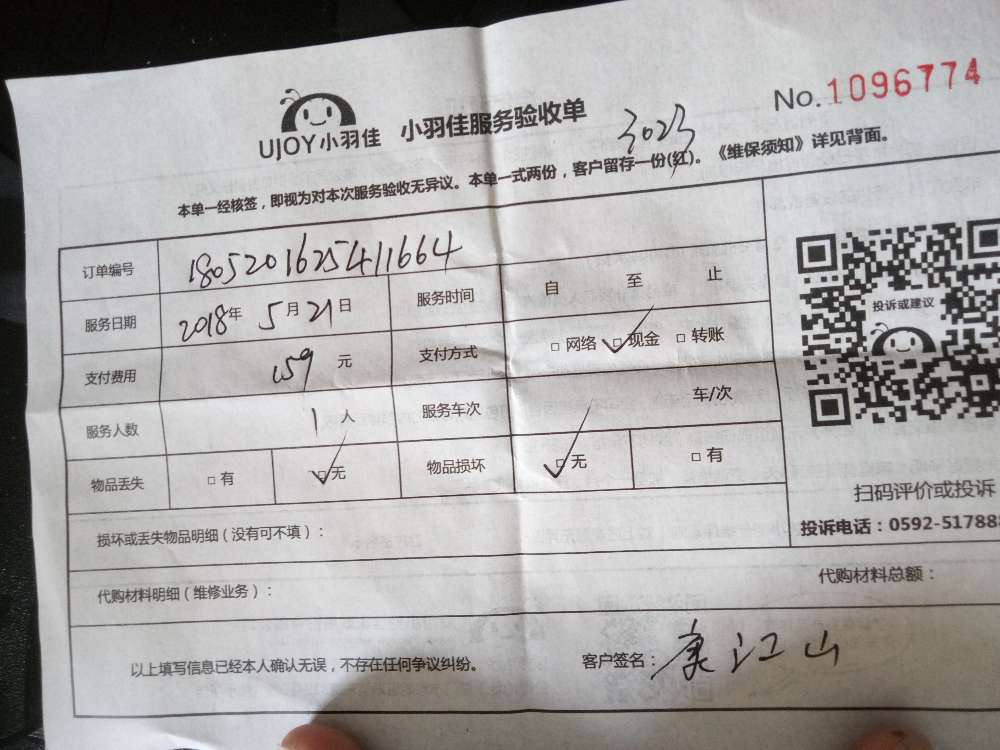 No.1096774
UJOY小羽佳 小羽佳服务验收单
3023
本单一经核签，即视为对本次服务验收无异议。本单一式两份，客户留存一份(红)。《维保须知》详见背面。
订单编号 1805201625411664
服务日期 2018年5月21日 服务时间 自 至 止
投诉或建议
支付费用 159元 支付方式 □网络 ☑现金 □转账
服务人数 1人 服务车次 车/次
物品丢失 □有 ☑无 物品损坏 ☑无 □有
扫码评价或投诉
投诉电话：0592-51788
损坏或丢失物品明细（没有可不填）：
代购材料明细（维修业务）： 代购材料总额：
以上填写信息已经本人确认无误，不存在任何争议纠纷。 客户签名：康江山